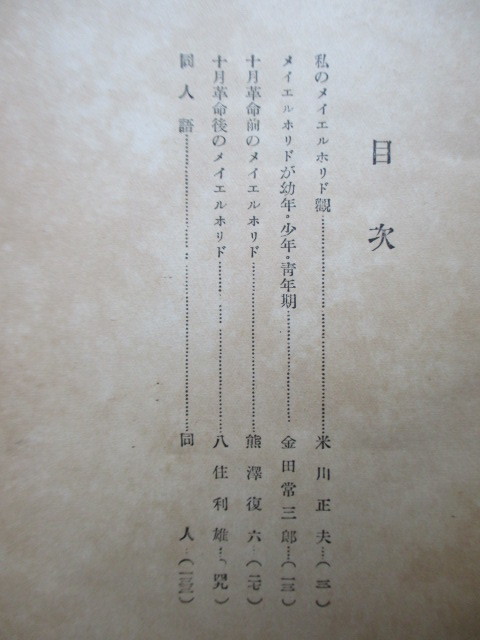 目次
私のメイエルホリド觀……………………米川正夫…(三)
メイエルホリドが幼年・少年・靑年期……………金田常三郎…(一三)
十月革命前のメイエルホリド……………………熊澤復六…(二七)
十月革命後のメイエルホリド……………………八住利雄…(咒)
同人語……………………………………同人…